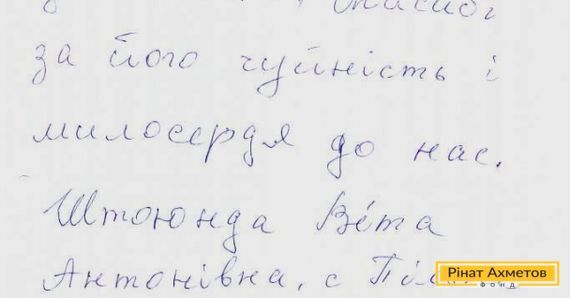 за його чуйність і
милосердя до нас.
Штоюнда Вета
Антонівна, с
Рінат Ахметов
ФОНД